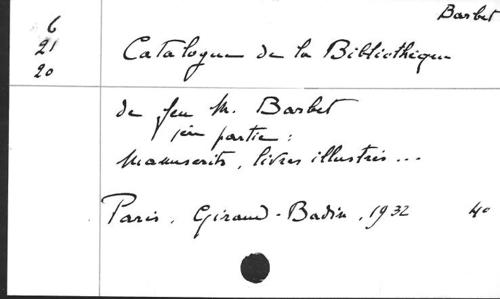 Barbet
6
21
20
Catalogue de la Bibliothèque
de feu M. Barbet
1ère partie :
Manuscrits, livres illustrés ...
Paris, Giraud-Badin, 1932 4o